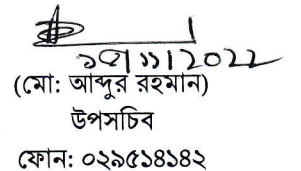 ১৩|১১|2022
(মো: আব্দুর রহমান)
উপসচিব
ফোন: ০২৯৫১৪১৪২